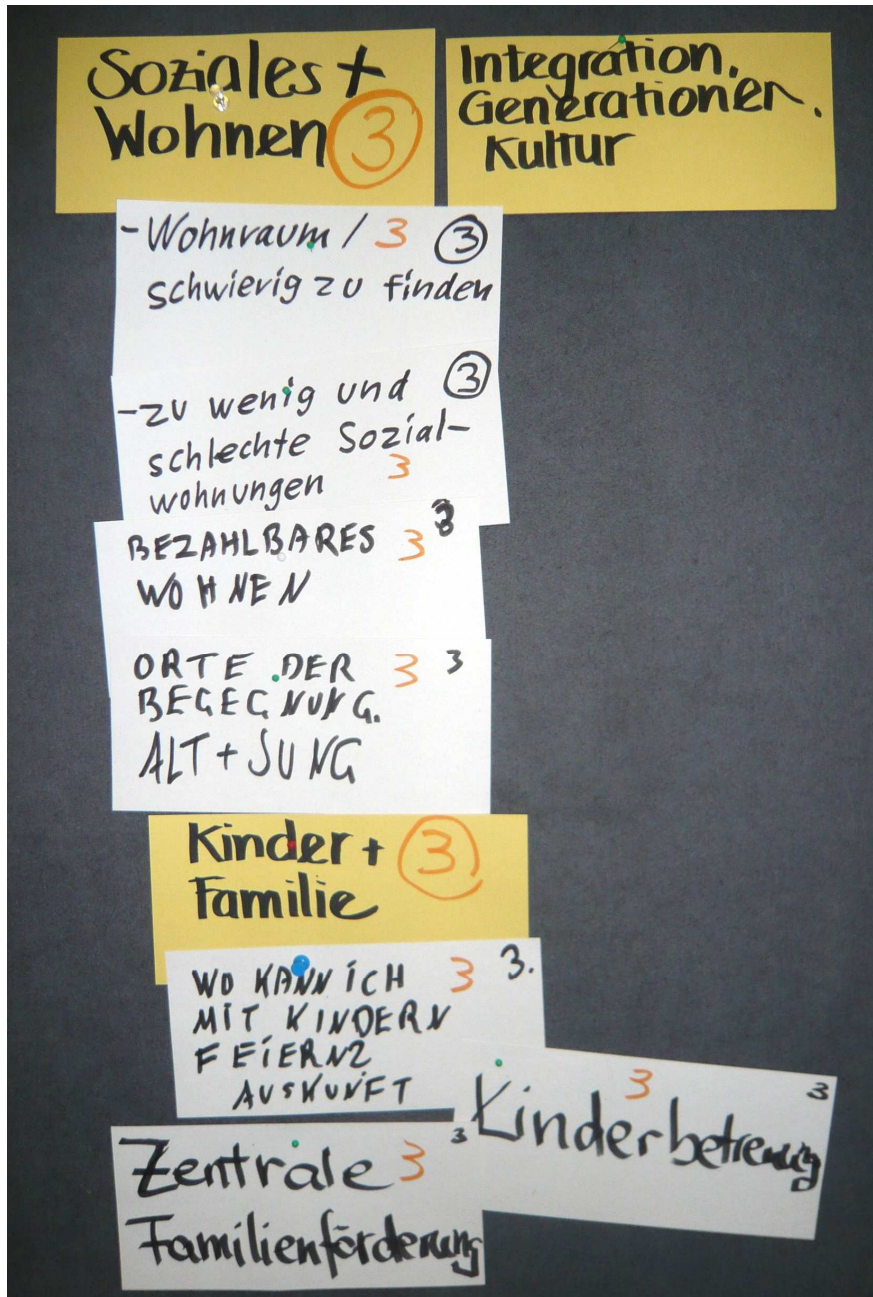 Soziales +
Wohnen 3
Integration,
Generationen,
Kultur
- Wohnraum / 3 3
schwierig zu finden
- zu wenig und 3
schlechte Sozial-
wohnungen 3
BEZAHLBARES 3 3
WOHNEN
ORTE DER 3 3
BEGEGNUNG.
ALT + JUNG
Kinder + 3
Familie
WO KANN ICH 3 3.
MIT KINDERN
FEIERN?
AUSKUNFT
3 3
Kinderbetreuung
Zentrale 3 3
Familienförderung